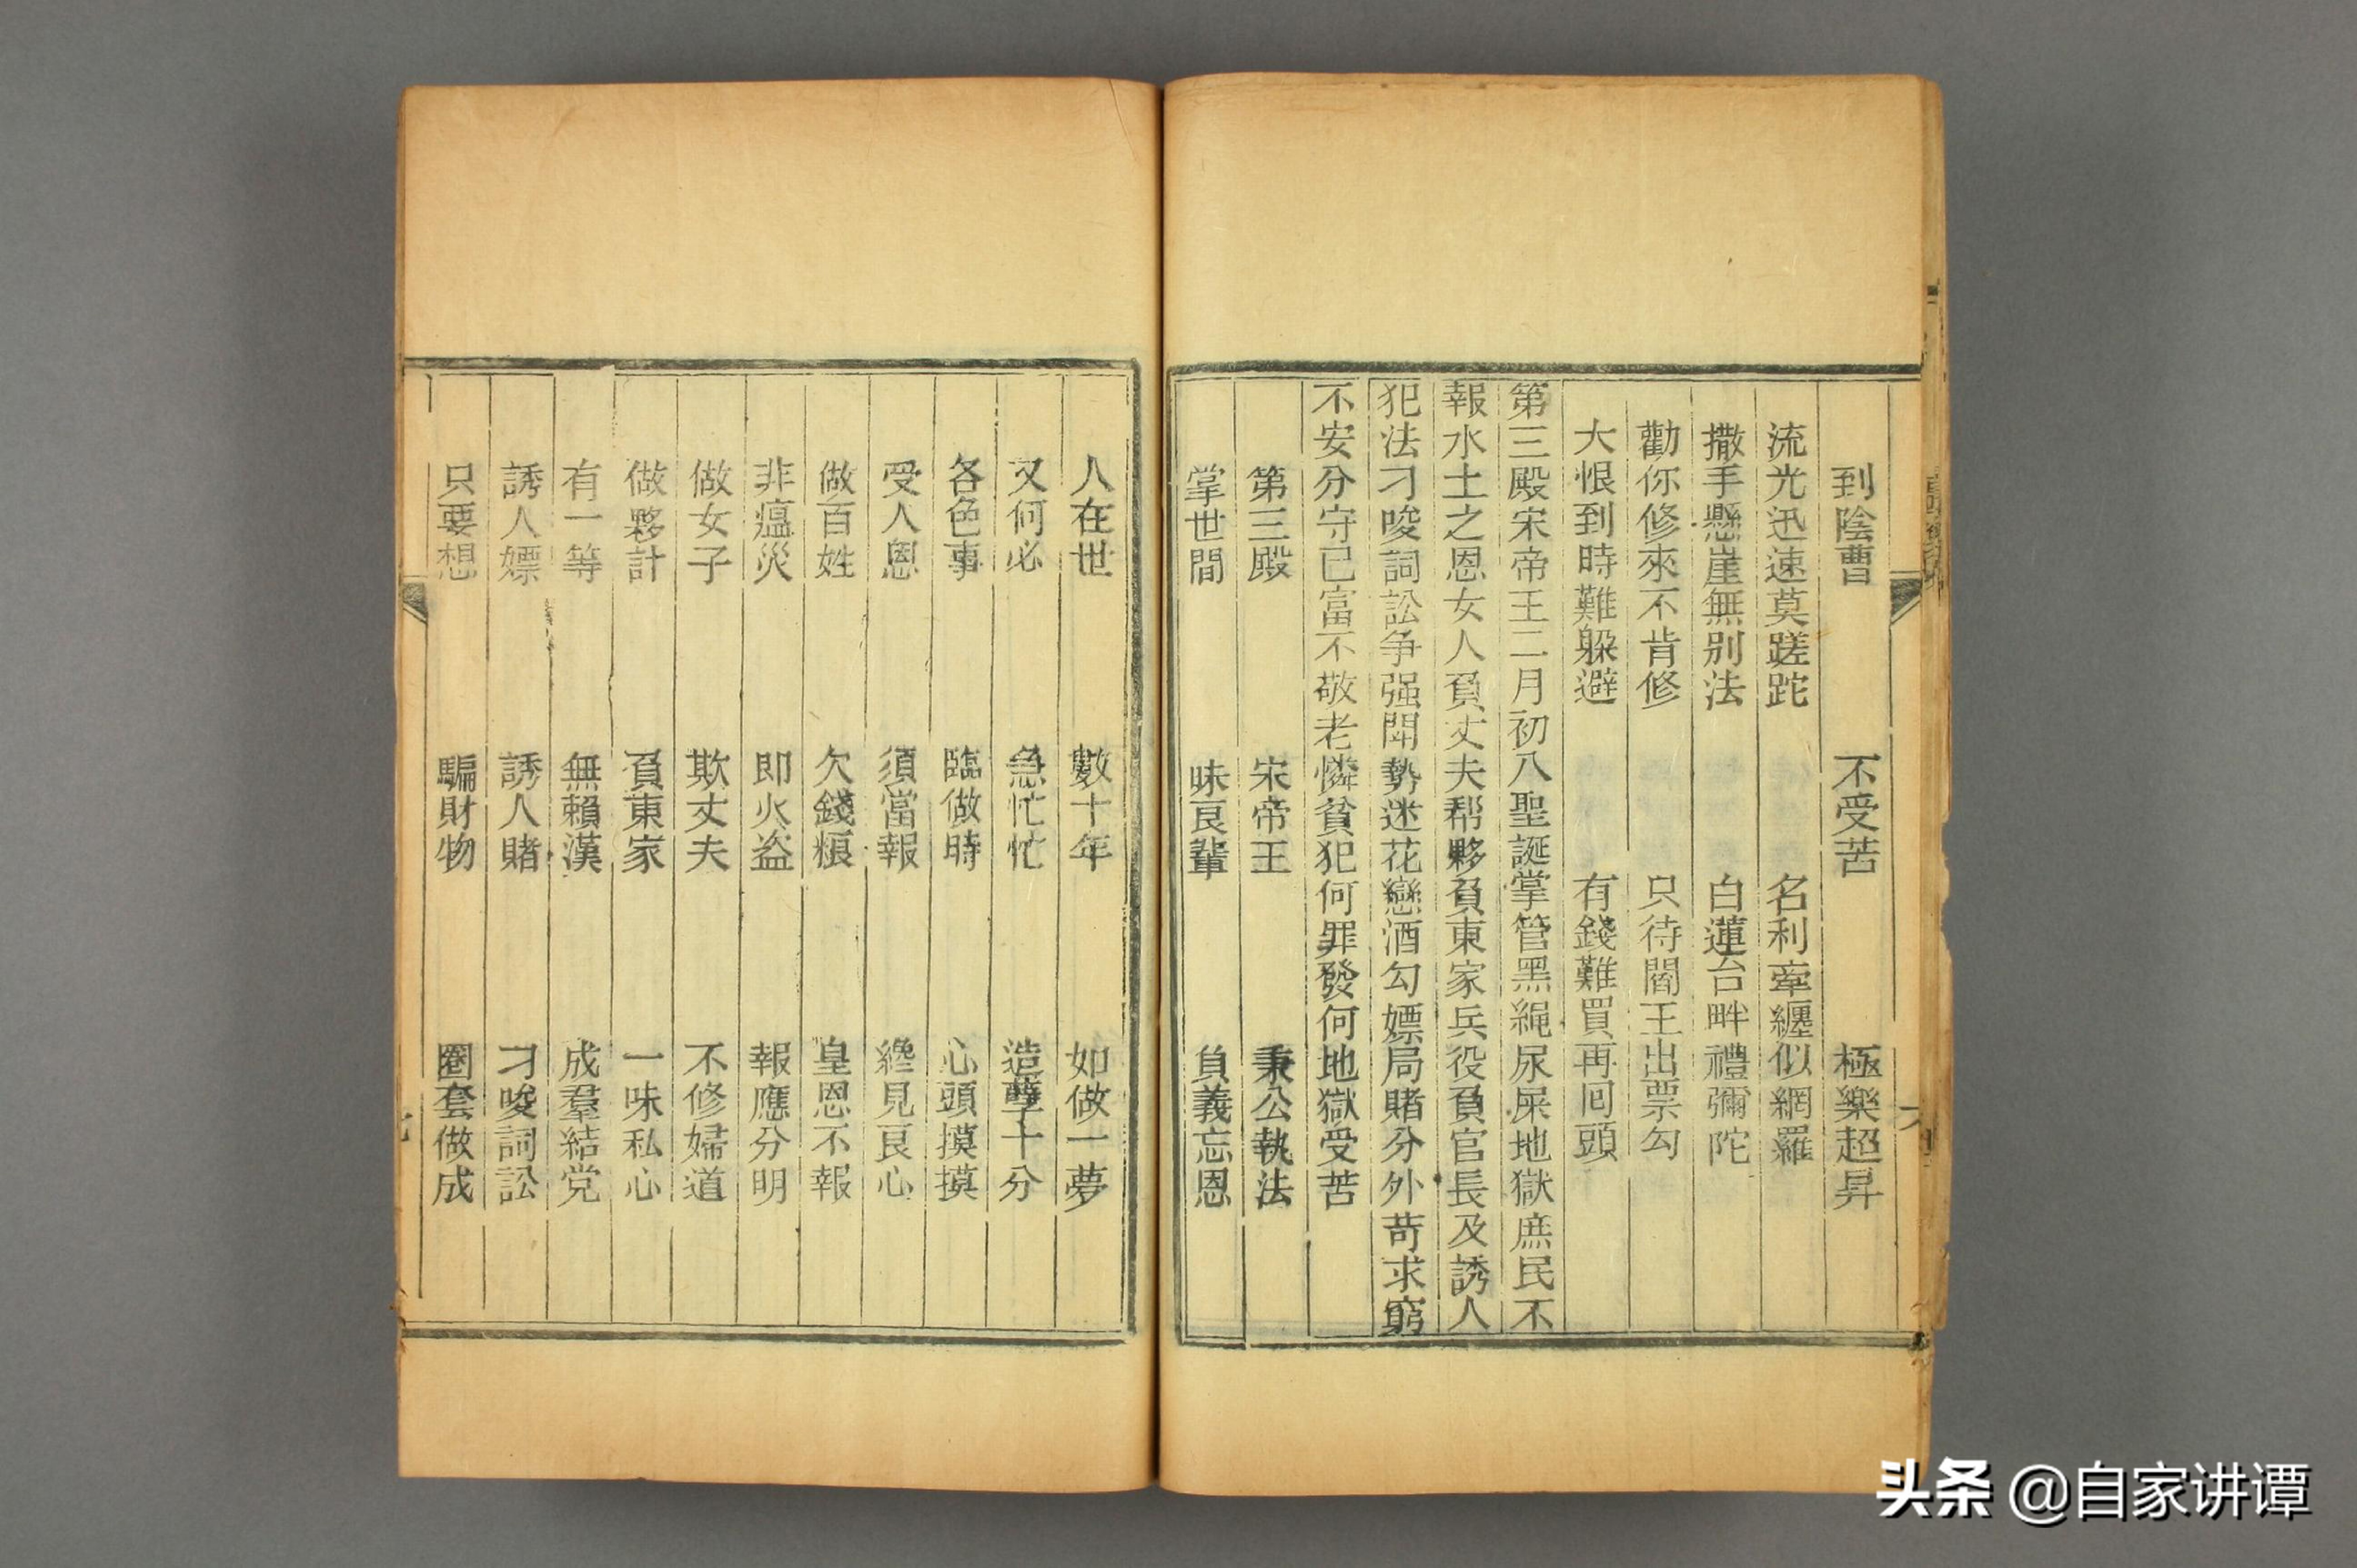 到陰曹 不受苦 極樂超昇
流光迅速莫蹉跎 名利牽纏似網羅
撒手懸崖無别法 白蓮台畔禮彌陀
勸你修來不肯修 只待閻王出票勾
大恨到時難躱避 有錢難買再囘頭
第三殿宋帝王二月初八聖誕掌管黑繩尿屎地獄庶民不
報水土之恩女人負丈夫帮夥負東家兵役負官長及誘人
犯法刁唆詞訟争强鬪勢迷花戀酒勾嫖局賭分外苛求窮
不安分守已富不敬老憐貧犯何罪發何地獄受苦
第三殿 宋帝王 秉公執法
掌世間 昧良輩 負義忘恩
人在世 數十年 如做一夢
又何必 急忙忙 造孽十分
各色事 臨做時 心頭摸摸
受人恩 須當報 纔見良心
做百姓 欠錢粮 皇恩不報
非瘟災 即火盗 報應分明
做女子 欺丈夫 不修婦道
做夥計 負東家 一味私心
有一等 無賴漢 成羣結党
誘人嫖 誘人賭 刁唆詞訟
只要想 騙財物 圈套做成
头条 @自家讲谭